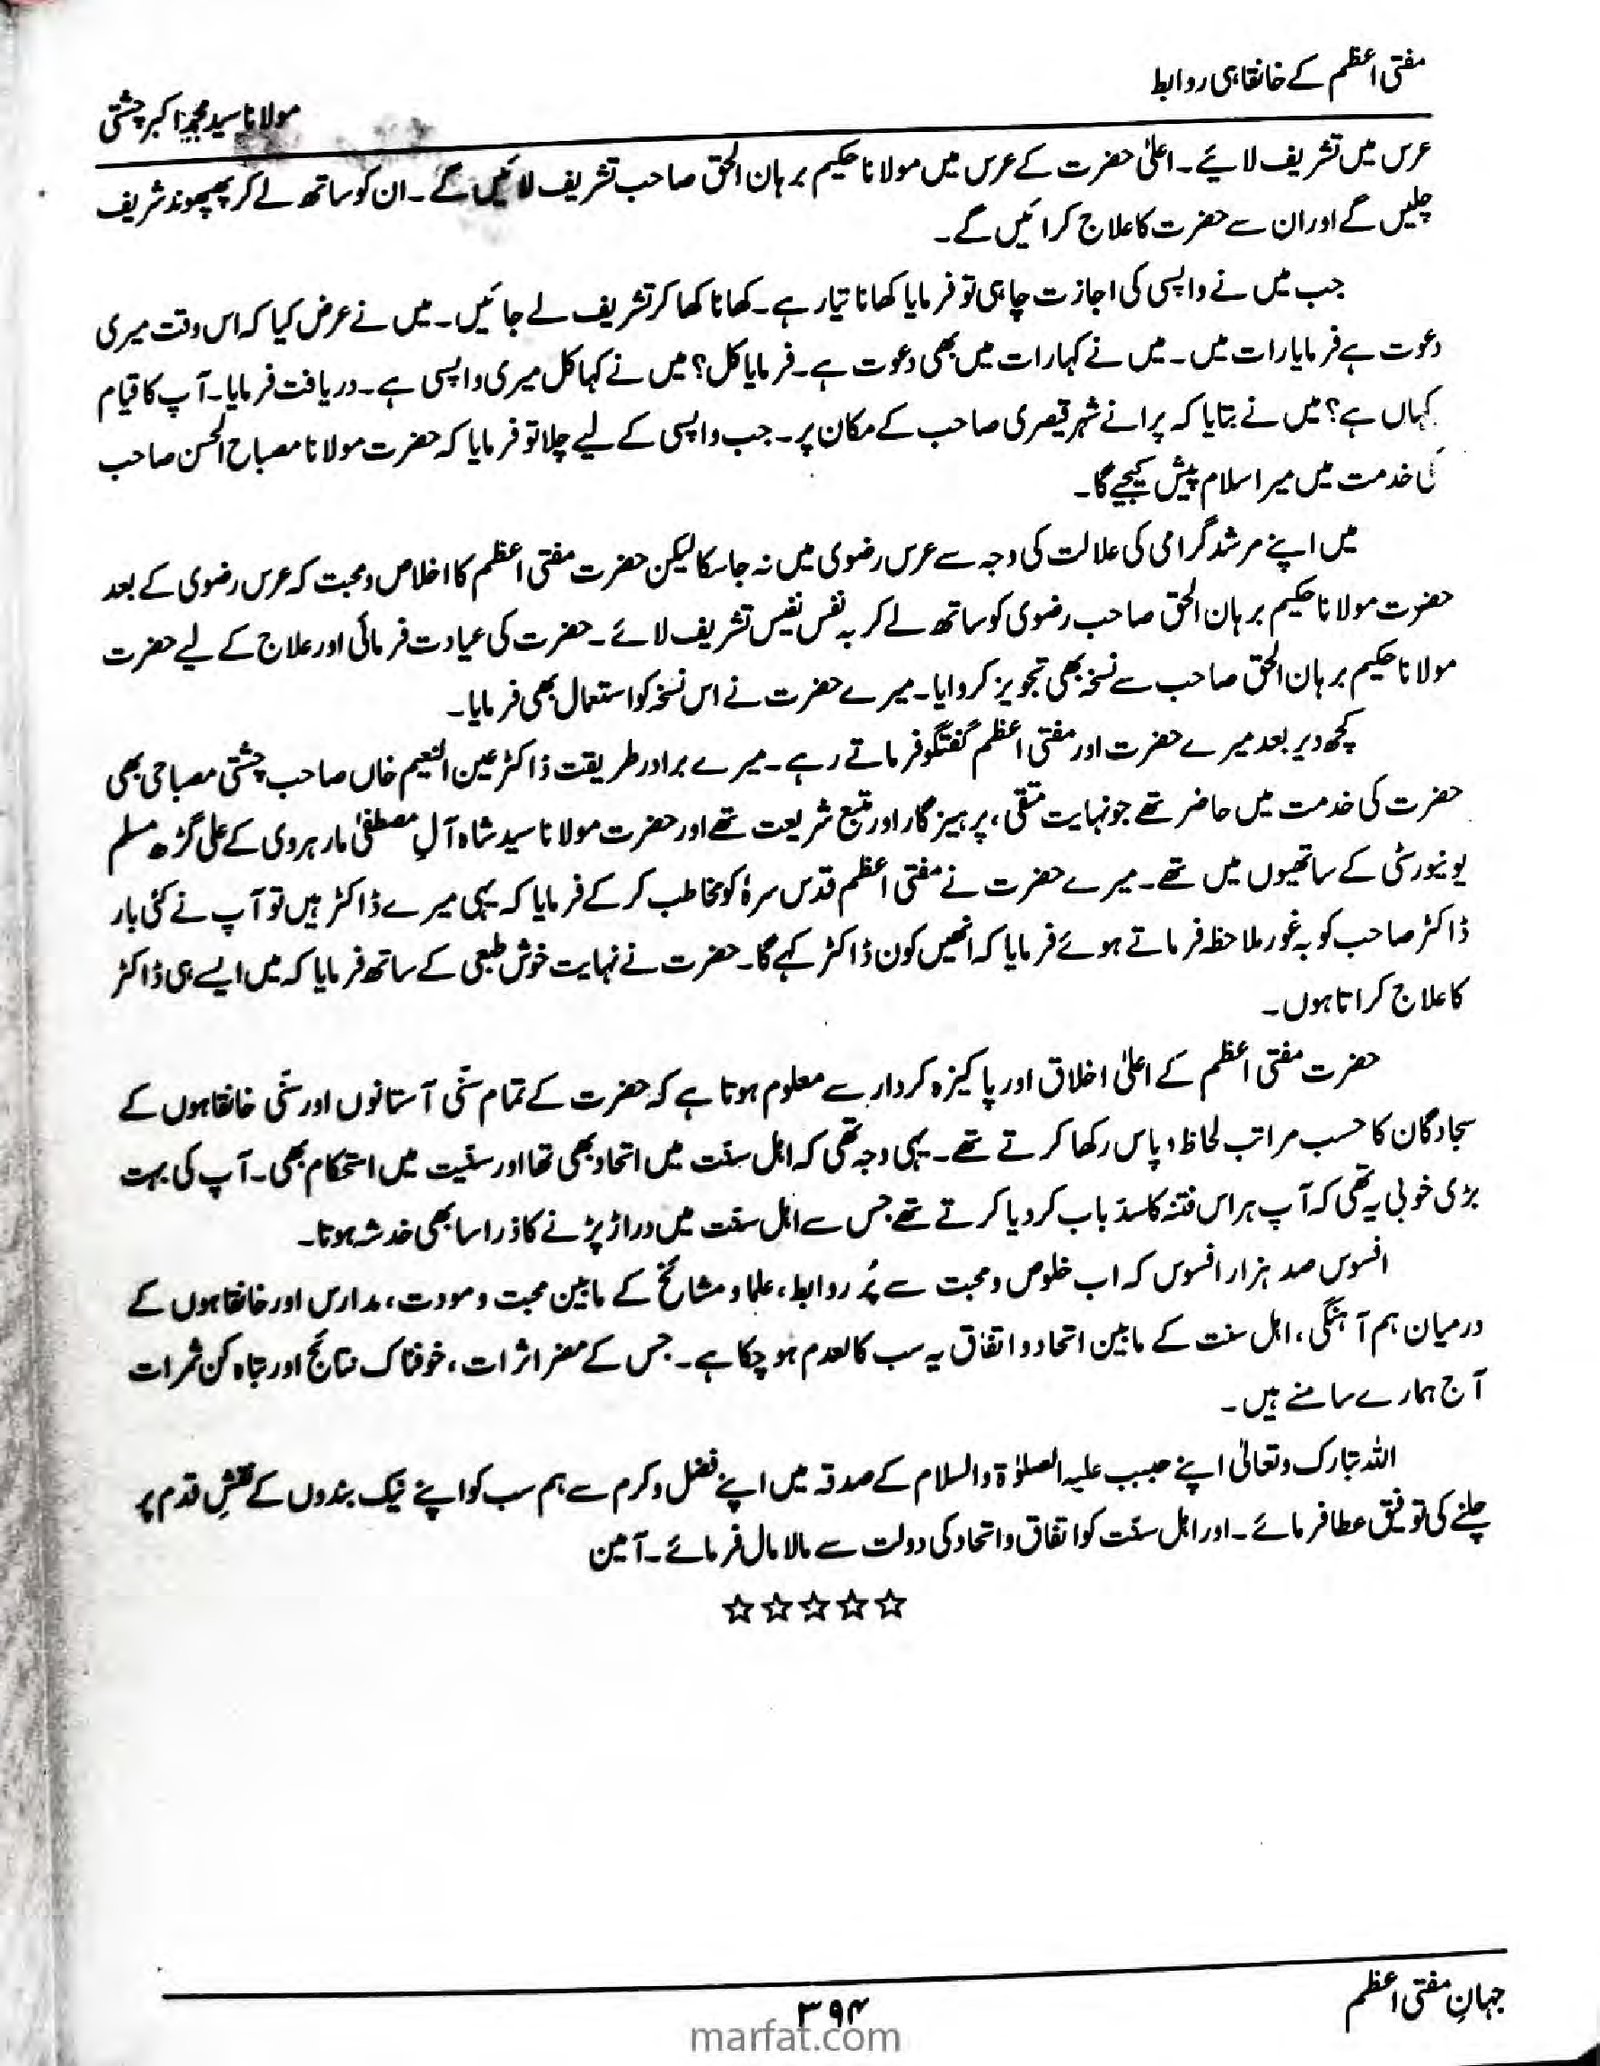 مفتی اعظم کے خانقاہی روابط
مولانا سید محمد اکبر چشتی
عرس میں تشریف لائیے۔ اعلیٰ حضرت کے عرس میں مولانا حکیم برہان الحق صاحب تشریف لائیں گے۔ ان کو ساتھ لے کر پھپھوند شریف
چلیں گے اور ان سے حضرت کا علاج کرائیں گے۔
جب میں نے واپسی کی اجازت چاہی تو فرمایا کھانا تیار ہے۔ کھانا کھا کر تشریف لے جائیں۔ میں نے عرض کیا کہ اس وقت میری
دعوت ہے فرمایا رات میں۔ میں نے کہا رات میں بھی دعوت ہے۔ فرمایا کل؟ میں نے کہا کل میری واپسی ہے۔ دریافت فرمایا۔ آپ کا قیام
کہاں ہے؟ میں نے بتایا کہ پرانے شہر قیصری صاحب کے مکان پر۔ جب واپسی کے لیے چلا تو فرمایا کہ حضرت مولانا مصباح الحسن صاحب
کی خدمت میں میرا سلام پیش کیجیے گا۔
میں اپنے مرشد گرامی کی علالت کی وجہ سے عرس رضوی میں نہ جا سکا لیکن حضرت مفتی اعظم کا اخلاص و محبت کہ عرس رضوی کے بعد
حضرت مولانا حکیم برہان الحق صاحب رضوی کو ساتھ لے کر بہ نفس نفیس تشریف لائے۔ حضرت کی عیادت فرمائی اور علاج کے لیے حضرت
مولانا حکیم برہان الحق صاحب سے نسخہ بھی تجویز کروایا۔ میرے حضرت نے اس نسخہ کو استعمال بھی فرمایا۔
کچھ دیر بعد میرے حضرت اور مفتی اعظم گفتگو فرماتے رہے۔ میرے برادر طریقت ڈاکٹر عین النعیم خاں صاحب چشتی مصباحی بھی
حضرت کی خدمت میں حاضر تھے جو نہایت متقی، پرہیزگار اور متبع شریعت تھے اور حضرت مولانا سید شاہ آلِ مصطفیٰ مارہروی کے علی گڑھ مسلم
یونیورسٹی کے ساتھیوں میں تھے۔ میرے حضرت نے مفتی اعظم قدس سرہٗ کو مخاطب کر کے فرمایا کہ یہی میرے ڈاکٹر ہیں تو آپ نے کئی بار
ڈاکٹر صاحب کو بہ غور ملاحظہ فرماتے ہوئے فرمایا کہ انھیں کون ڈاکٹر کہے گا۔ حضرت نے نہایت خوش طبعی کے ساتھ فرمایا کہ میں ایسے ہی ڈاکٹر
کا علاج کراتا ہوں۔
حضرت مفتی اعظم کے اعلیٰ اخلاق اور پاکیزہ کردار سے معلوم ہوتا ہے کہ حضرت کے تمام سنّی آستانوں اور سنّی خانقاہوں کے
سجادگان کا حسب مراتب لحاظ و پاس رکھا کرتے تھے۔ یہی وجہ تھی کہ اہل سنّت میں اتحاد بھی تھا اور سنّیت میں استحکام بھی۔ آپ کی بہت
بڑی خوبی یہ تھی کہ آپ ہر اس فتنہ کا سدّ باب کر دیا کرتے تھے جس سے اہل سنّت میں دراڑ پڑنے کا ذرا سا بھی خدشہ ہوتا۔
افسوس صد ہزار افسوس کہ اب خلوص و محبت سے پُر روابط، علما و مشائخ کے مابین محبت و مودت، مدارس اور خانقاہوں کے
درمیان ہم آہنگی، اہل سنت کے مابین اتحاد و اتفاق یہ سب کالعدم ہو چکا ہے۔ جس کے مضر اثرات، خوفناک نتائج اور تباہ کن ثمرات
آج ہمارے سامنے ہیں۔
اللہ تبارک و تعالیٰ اپنے حبیب علیہ الصلوٰۃ والسلام کے صدقہ میں اپنے فضل و کرم سے ہم سب کو اپنے نیک بندوں کے نقشِ قدم پر
چلنے کی توفیق عطا فرمائے۔ اور اہل سنّت کو اتفاق و اتحاد کی دولت سے مالا مال فرمائے۔ آمین
☆☆☆☆☆
جہانِ مفتی اعظم
۳۹۴
marfat.com